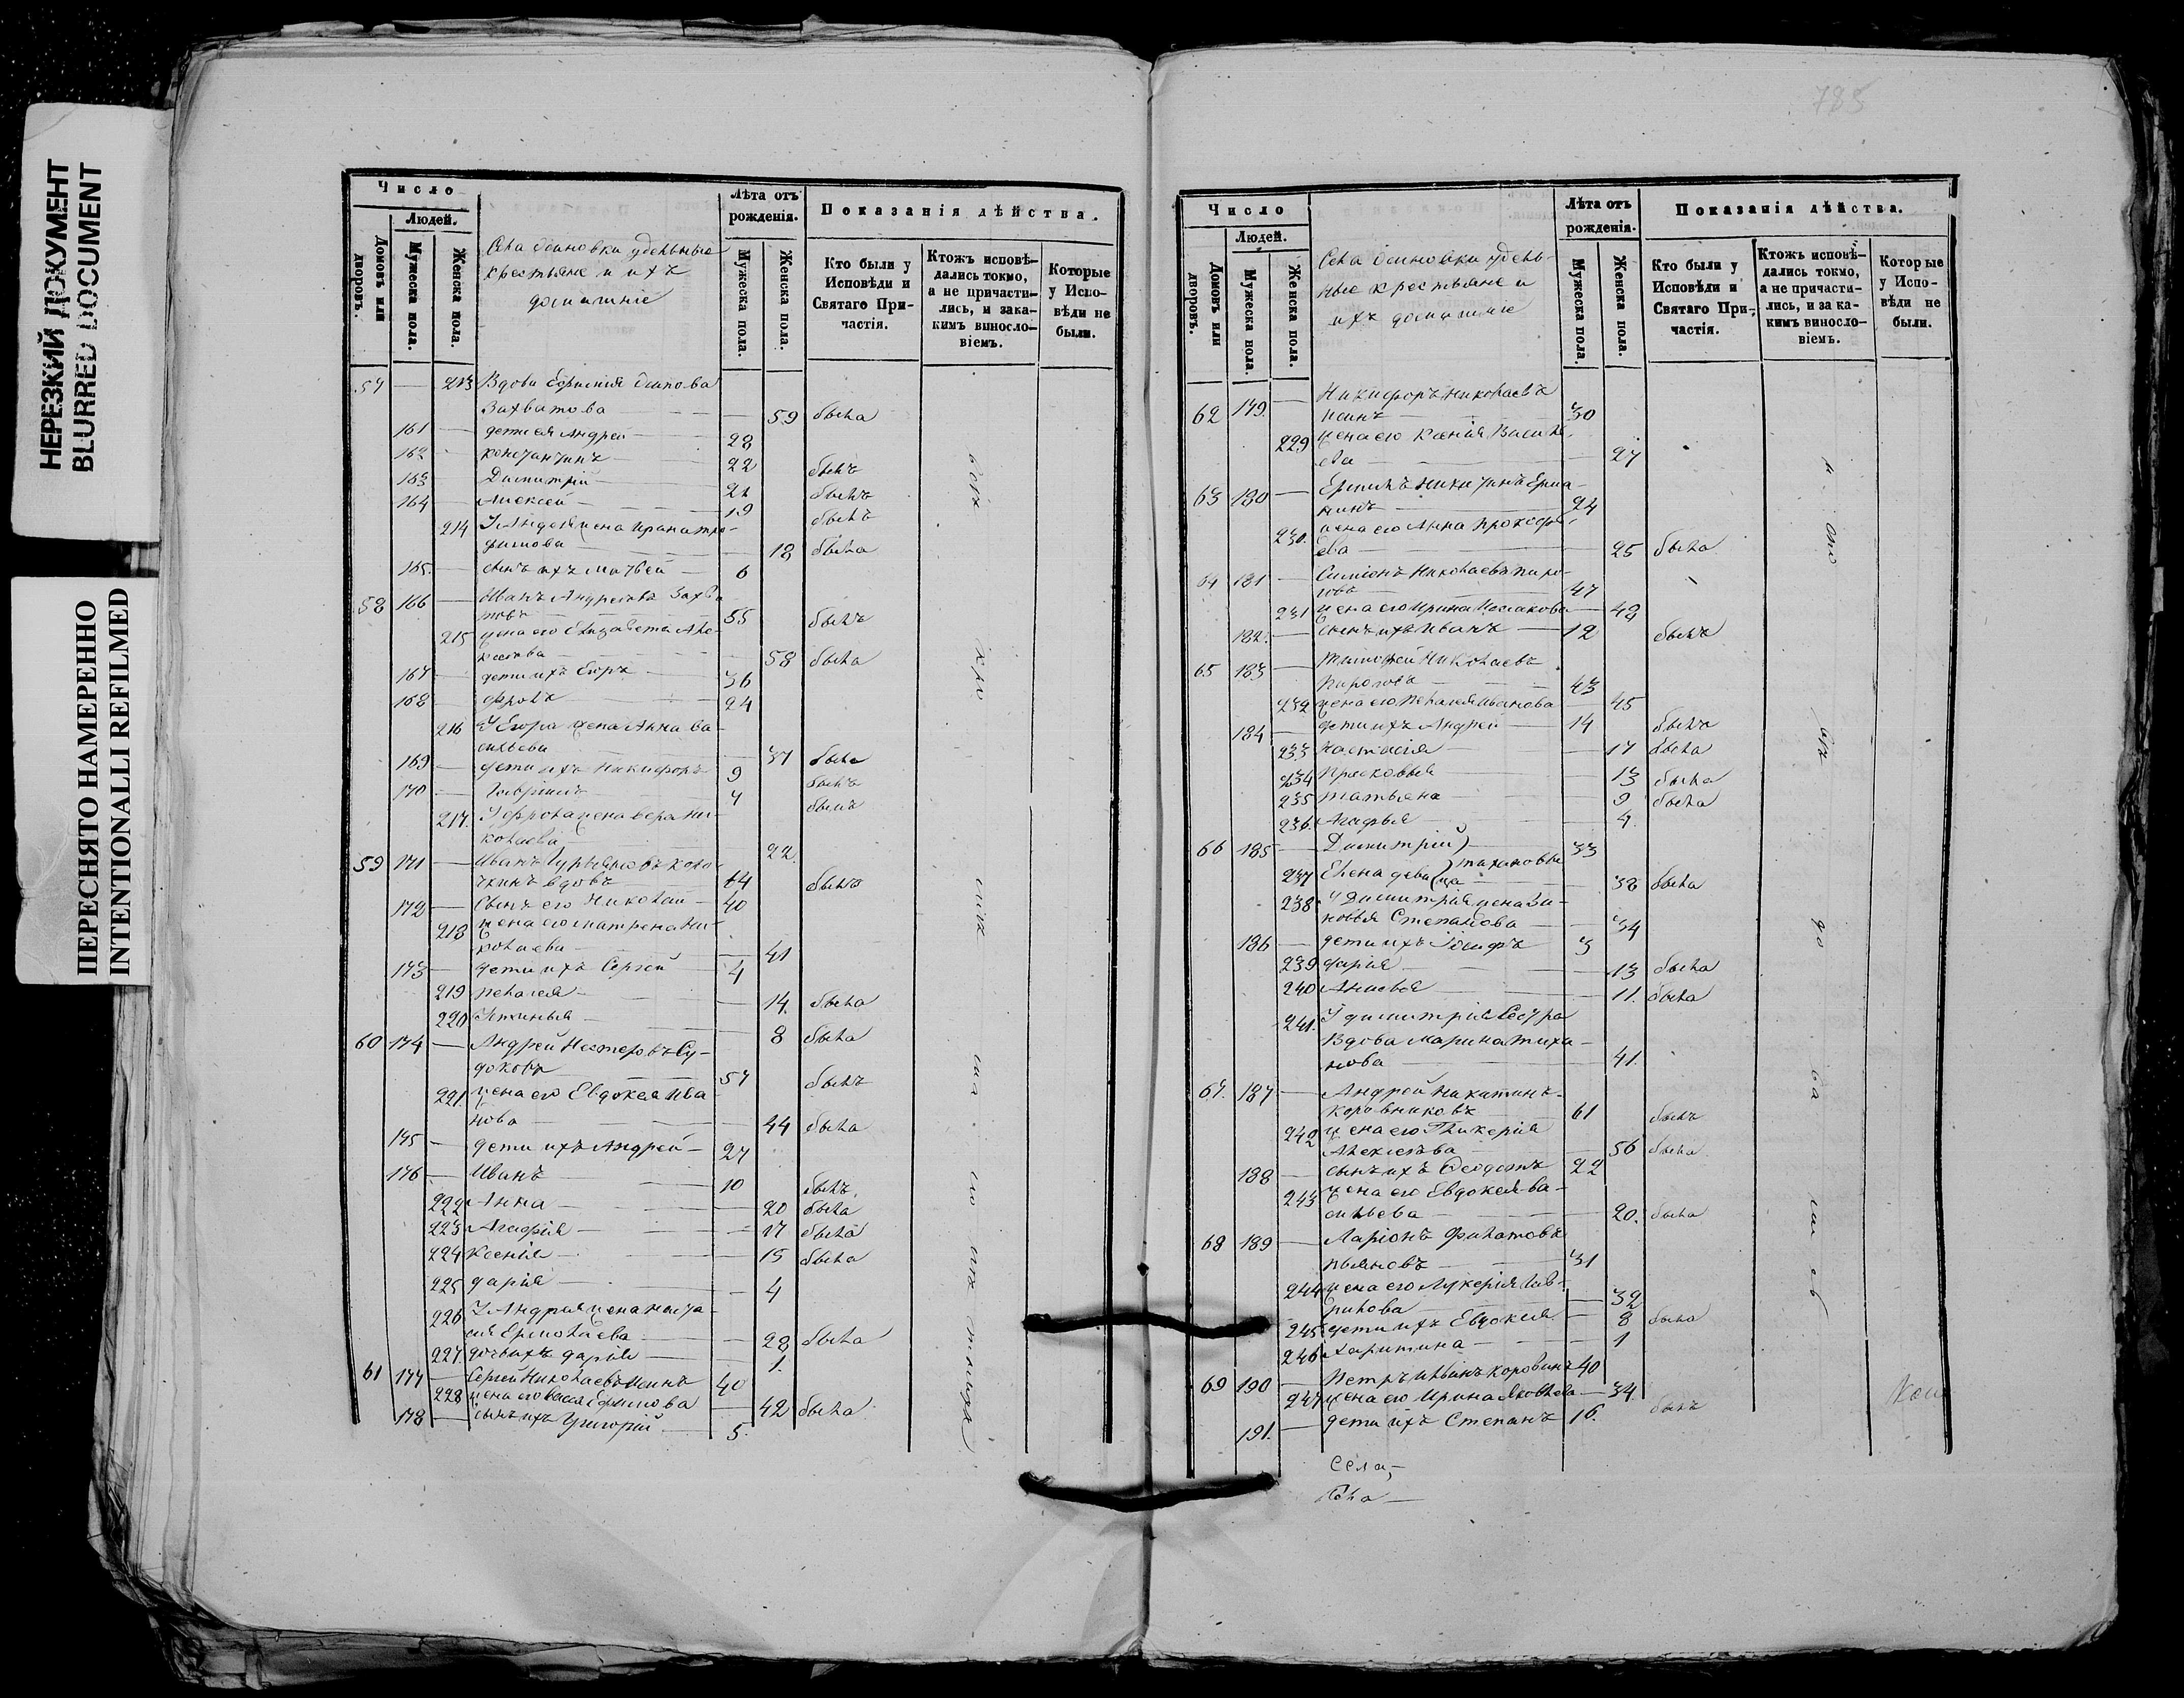 НЕРЕЗКИЙ ДОКУМЕНТ
BLURRED DOCUMENT
ПЕРЕСНЯТО НАМЕРЕННО
INTENTIONALLI REFILMED
Число
Людей.
Домовъ или дворовъ.
Мужеска пола.
Женска пола.
Села Осиновки удельные
крестьяне и ихъ
домашніе
Лѣта отъ рожденія.
Мужеска пола.
Женска пола.
Показанія дѣйства.
Кто были у Исповѣди и Святаго Причастія.
Ктожъ исповѣдались токмо, а не причастились, и закакимъ винословіемъ.
Которые у Исповѣди не были.
57 — 213 Вдова Осипова
Захватова — 59 была
161 — дети ея Андрей — 28
162 Констянтинъ — 22 былъ
163 — Димитрій — 21 былъ
164 — Алексей — 19 былъ
214 У Андрея жена Ирина Тро-
фимова — 18 была
165. — сынъ ихъ Матвей — 6
58 166 — Иванъ Андреевъ Захва
товъ — 55 былъ
215 жена его Елизавета Але-
ксеева — 58 была
167 — дети ихъ Егоръ — 36
168 — Фролъ — 24
216 У Егора жена Анна Ва-
сильева — 37 была
169 — дети ихъ Никифоръ 9 былъ
170 — Гаврилъ — 7 былъ
217. У Фрола жена Вера Ни-
колаева — 22.
59 171 — Иванъ Гурьяновъ
вдовъ — 64 былъ
172 — Сынъ его Николай — 40
218 жена его Матрена Ни-
колаева — 41
173 — дети ихъ Сергей — 4
219 Пелагея — 14. была
220 Устинья — 8 была
60 174 — Андрей Нестеровъ Су-
доковъ — 57 былъ
221. жена его Евдокея Ива
нова — 44 была
175 — дети ихъ Андрей — 27
176 — Иванъ — 10 былъ
222 Анна — 20 была
223 Агафія — 17 была
224 Ксенія — 15 была
225 Дарія — 4
226 У Андрея жена Наста
сия Ермолаева — 28 была
227. дочь ихъ Дарія — 1.
61 177 — Сергей Николаевъ 40
228 жена его Ефимова — 42 была
178 — сынъ ихъ Григорій — 5.
785
Число
Людей.
Домовъ или дворовъ.
Мужеска пола.
Женска пола.
Села Осиновки удель-
ные крестьяне и
ихъ домашніе
Лѣта отъ рожденія.
Мужеска пола.
Женска пола.
Показанія дѣйства.
Кто были у Исповѣди и Святаго Причастія.
Ктожъ исповѣдались токмо, а не причастились, и за какимъ винословіемъ.
Которые у Исповѣди не были.
62 179. — Никифоръ Николаевъ
30
229 жена его Ксенія Василь
ева — 27
63 180 — Ермилъ Никитинъ Ерма
нинъ — 24
230. жена его Анна Прокофь
ева — 25 была
64 181 — Симіонъ Николаевъ Пиро-
говъ — 47
231 жена его Ирина Исакова — 48
182. — сынъ ихъ Иванъ — 12 былъ
65 183 — Тимофей Николаевъ
Пироговъ — 43
232 жена его Пелагея Иванова — 45
184 — дети ихъ Андрей — 14 былъ
233 Настасія — 17 была
234 Прасковья — 13 была
235 Татьяна — 9 была
236. Агафья — 4.
66 185 — Димитрій 33
Тихановы
237 Елена девица — 38 была
238. У Димитрія жена Зи-
новья Степанова — 34
186 — дети ихъ Іосифъ 3
239 Дарія — 13 была
240 Анисья — 11. была
241. У Димитрія Сестра
Вдова Марина Тиха-
нова — 41.
67. 187 — Андрей Никитинъ
Коровниковъ 61 былъ
242 жена его Гликерія
Алексеева — 56 была
188 — сынъ ихъ Федотъ 22
243 жена его Евдокея Ва-
сильева — 20. была
68 189 — Ларіонъ Филатовъ
Пьяновъ — 31
244 жена его Лукерія Гав-
рилова — 32
245 дети ихъ Евдокея — 8 была
246 Харитина — 1
69 190 — Петръ Иванъ Коровинъ 40
247 жена его Ирина Яковлева — 34.
191. — дети ихъ Степанъ 16. былъ
Села,—